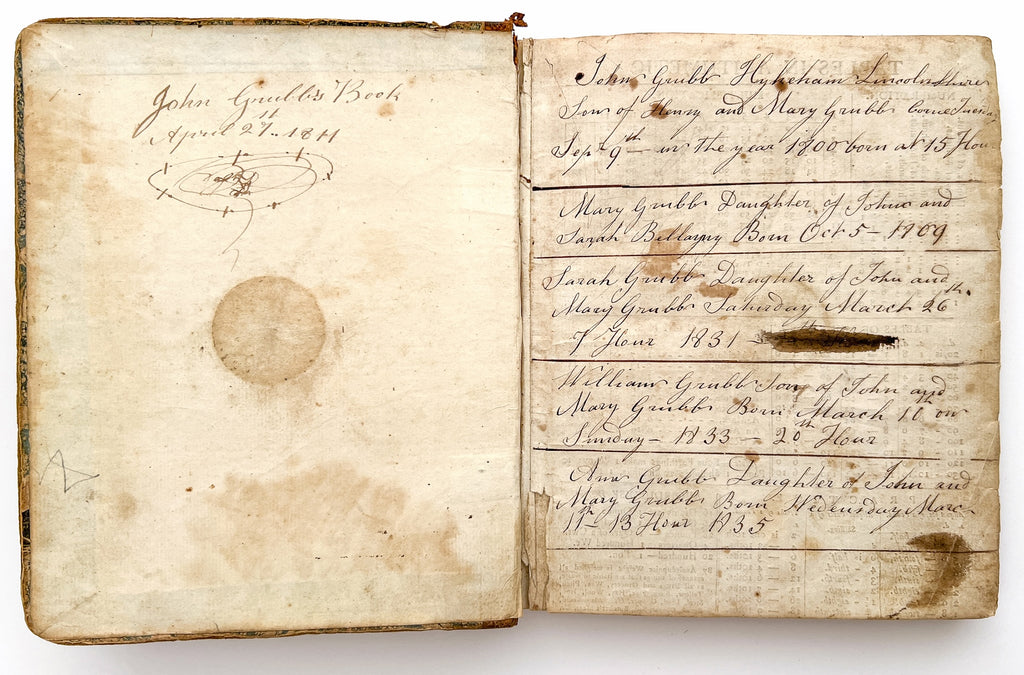 John Grubb's Book
April 27th.. 1811
John Grubb Hykeham Lincolnshire
Son of Henry and Mary Grubb borne
Sepr 9th — in the year 1800 born at 15 Hour
Mary Grubb Daughter of Johne and
Sarah Bellamy Born Oct 5 — 1809
Sarah Grubb Daughter of John and
Mary Grubb Saturday March 26th.
7 Hour 1831 —
William Grubb Son of John and
Mary Grubb Born March 10th on
Sunday — 1833 — 20th Hour
Ann Grubb Daughter of John and
Mary Grubb Born Wedensday Marc
11th— 13 Hour 1835